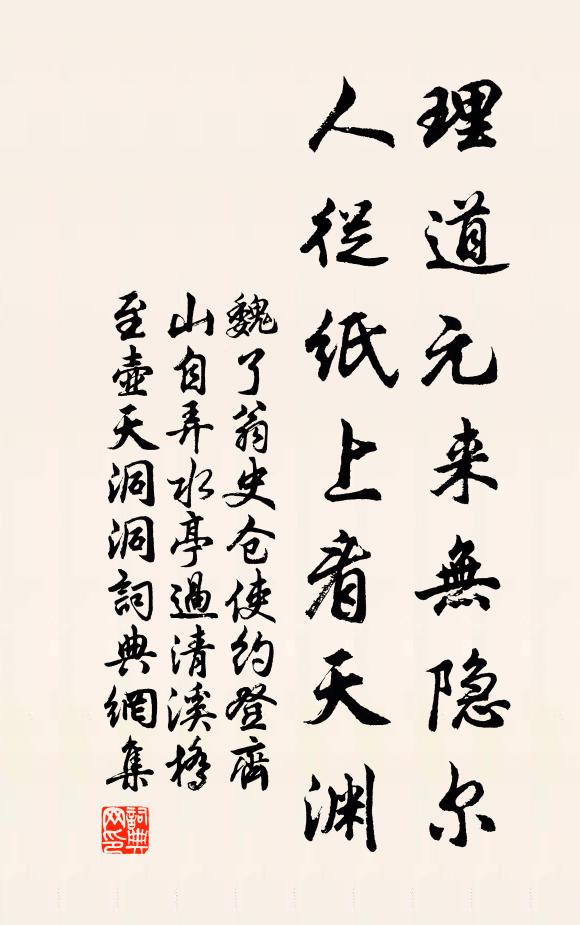 理道元来無隐尔
人從紙上看天渊
魏了翁史仓使约登齊
山自弄水亭過清溪橋
至壺天洞洞詞典網集
詞典
网印